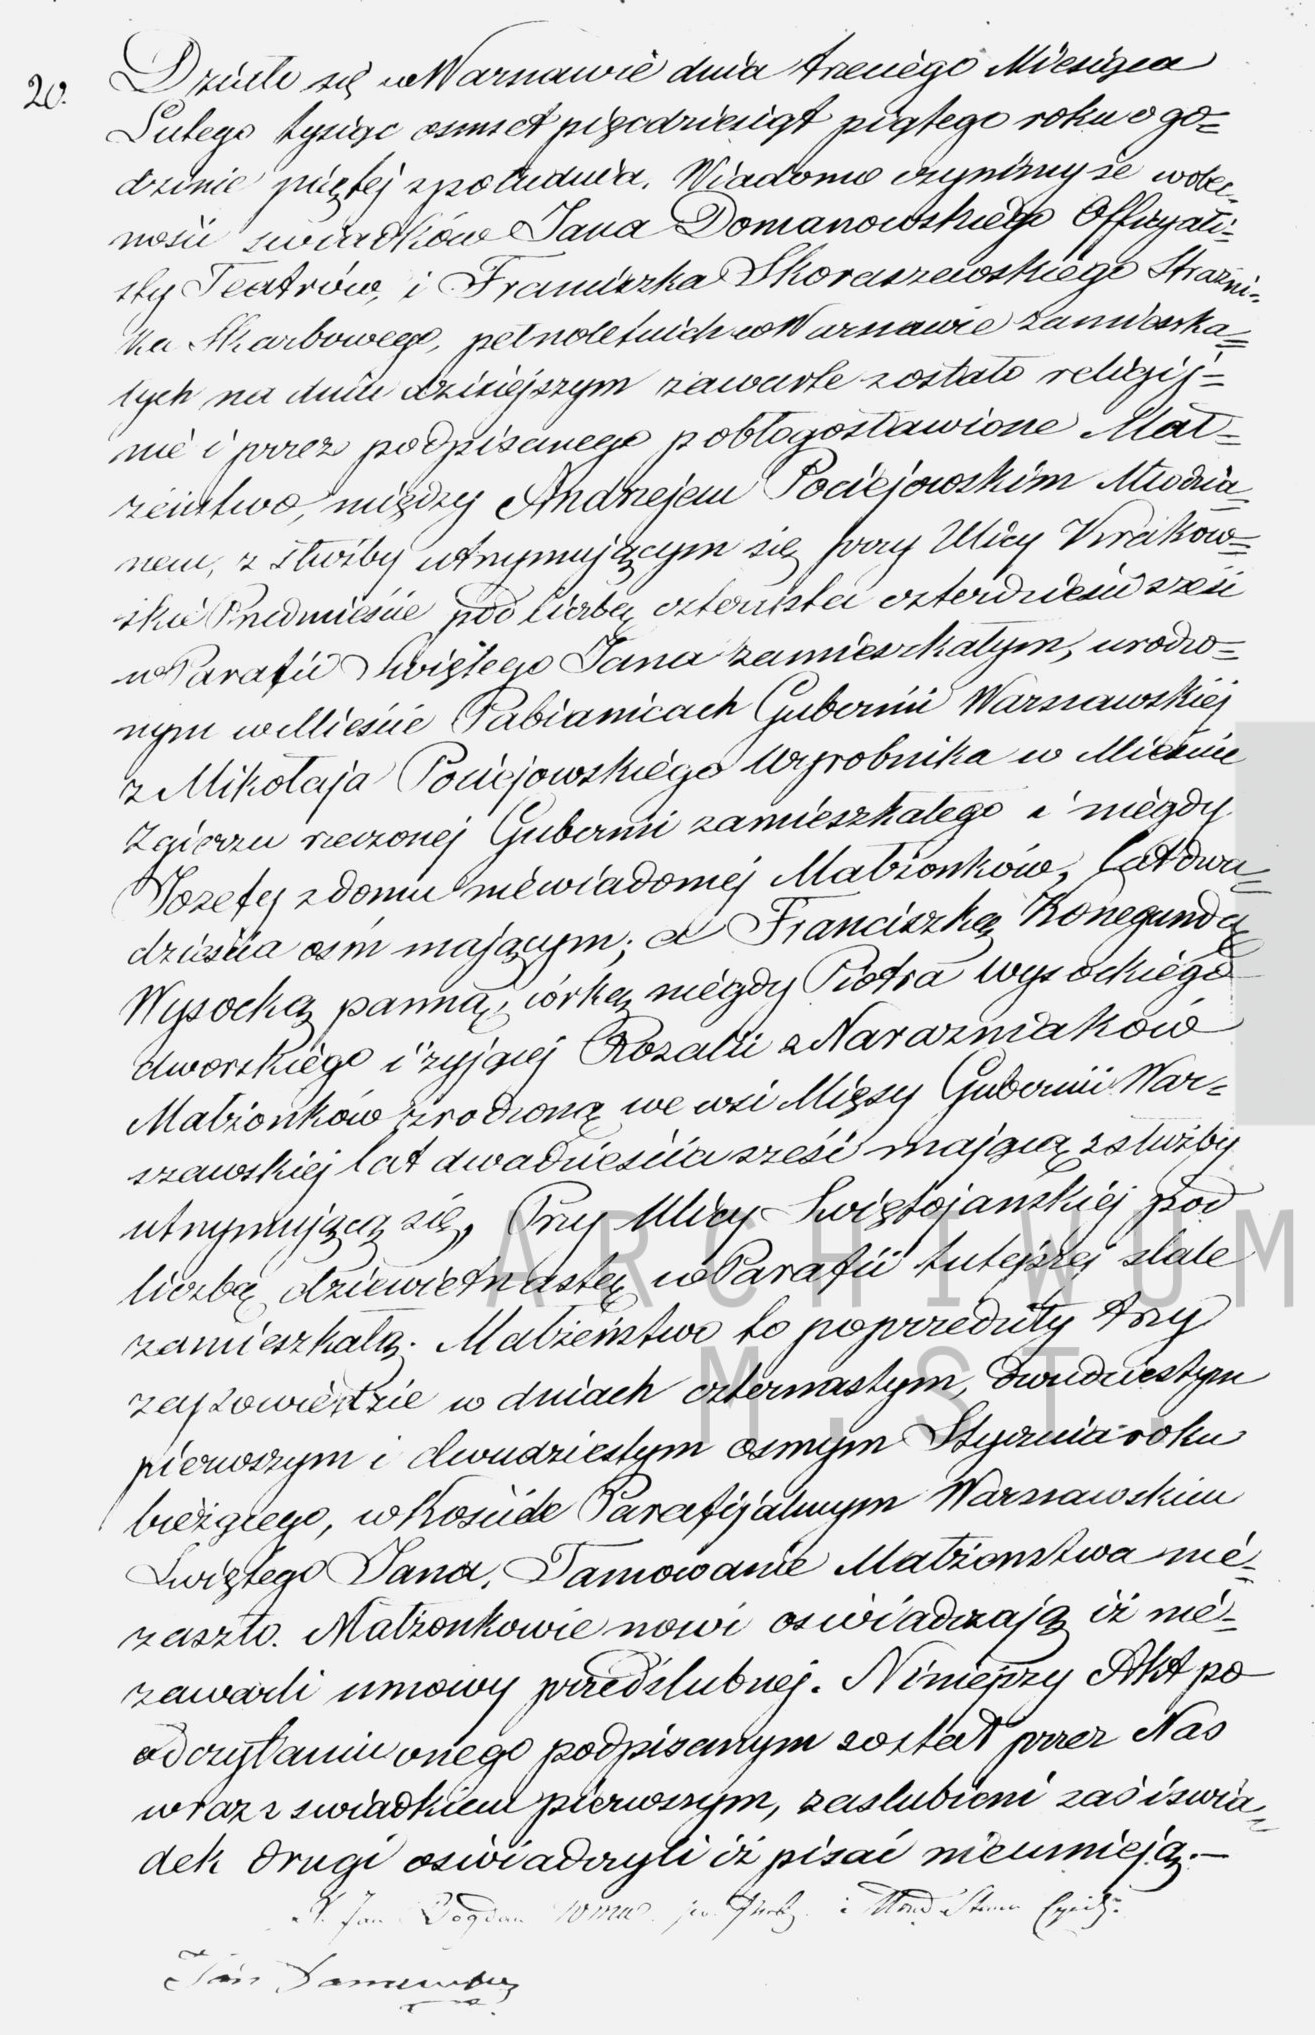 20.
Działo się w Warszawie dnia trzeciego Miesiąca
Lutego tysiąc osmset pięćdziesiąt piątego roku o go=
dzinie piątej z południa. Wiadomo czynimy że w obec=
ności swiadków Jana Domanowskiego Officyali=
sty Teatrów, i Franciszka Skoraszewskiego Strażni=
ka Skarbowego, pełnoletnich w Warszawie zamieszka=
łych na dniu dzisiejszym zawarte zostało religij=
nie i przez podpisanego pobłogosławione Mał=
żeństwo, między Andrzejem Pociejowskim Młodzia=
nem, z służby utrzymującym się przy Ulicy Krakow=
skie Przedmieście pod liczbą czterysta czterdzieści sześć
w Parafii Świętego Jana zamieszkałym, urodzo=
nym w Mieście Pabianicach Gubernii Warszawskiéj
z Mikołaja Pociejowskiégo Wyrobnika w Mieście
Zgierzu rzeczonej Gubernii zamieszkałego i niégdy
Józefy z domu niéwiadoméj Małżonków, lat dwa=
dzieścia ośm mającym; a Franciszką Konegundą
Wysocką panną, córką niégdy Piotra Wysockiégo
dworskiégo i żyjącéj Rozalii z Naraźniaków
Małżonków zrodzoną we wsi Mięsy Gubernii War=
szawskiéj lat dwadzieścia sześć mającą z służby
utrzymującą się, Przy Ulicy Świętojańskiéj pod
liczbą dziewiętnastą w Parafii tutejszéj stale
zamieszkałą. Małżeństwo to poprzedziły trzy
zapowiedzie w dniach czternastym, dwudziestym
pierwszym i dwudziestym osmym Stycznia roku
bieżącego, w Kościele Parafijalnym Warszawskim
Świętego Jana. Tamowanie Małżonstwa nié=
zaszło. Małżonkowie nowi oświadczają iż nié=
zawarli umowy przedślubnej. Niniejszy Akt po
odczytaniu onego podpisanym został przez Nas
wraz z swiadkiem pierwszym, zaslubieni zaś i swia=
dek drugi oświadczyli iż pisać nieumieją.—
X. Jan Bogdan
Jan Domanowski
ARCHIWUM
M. ST.